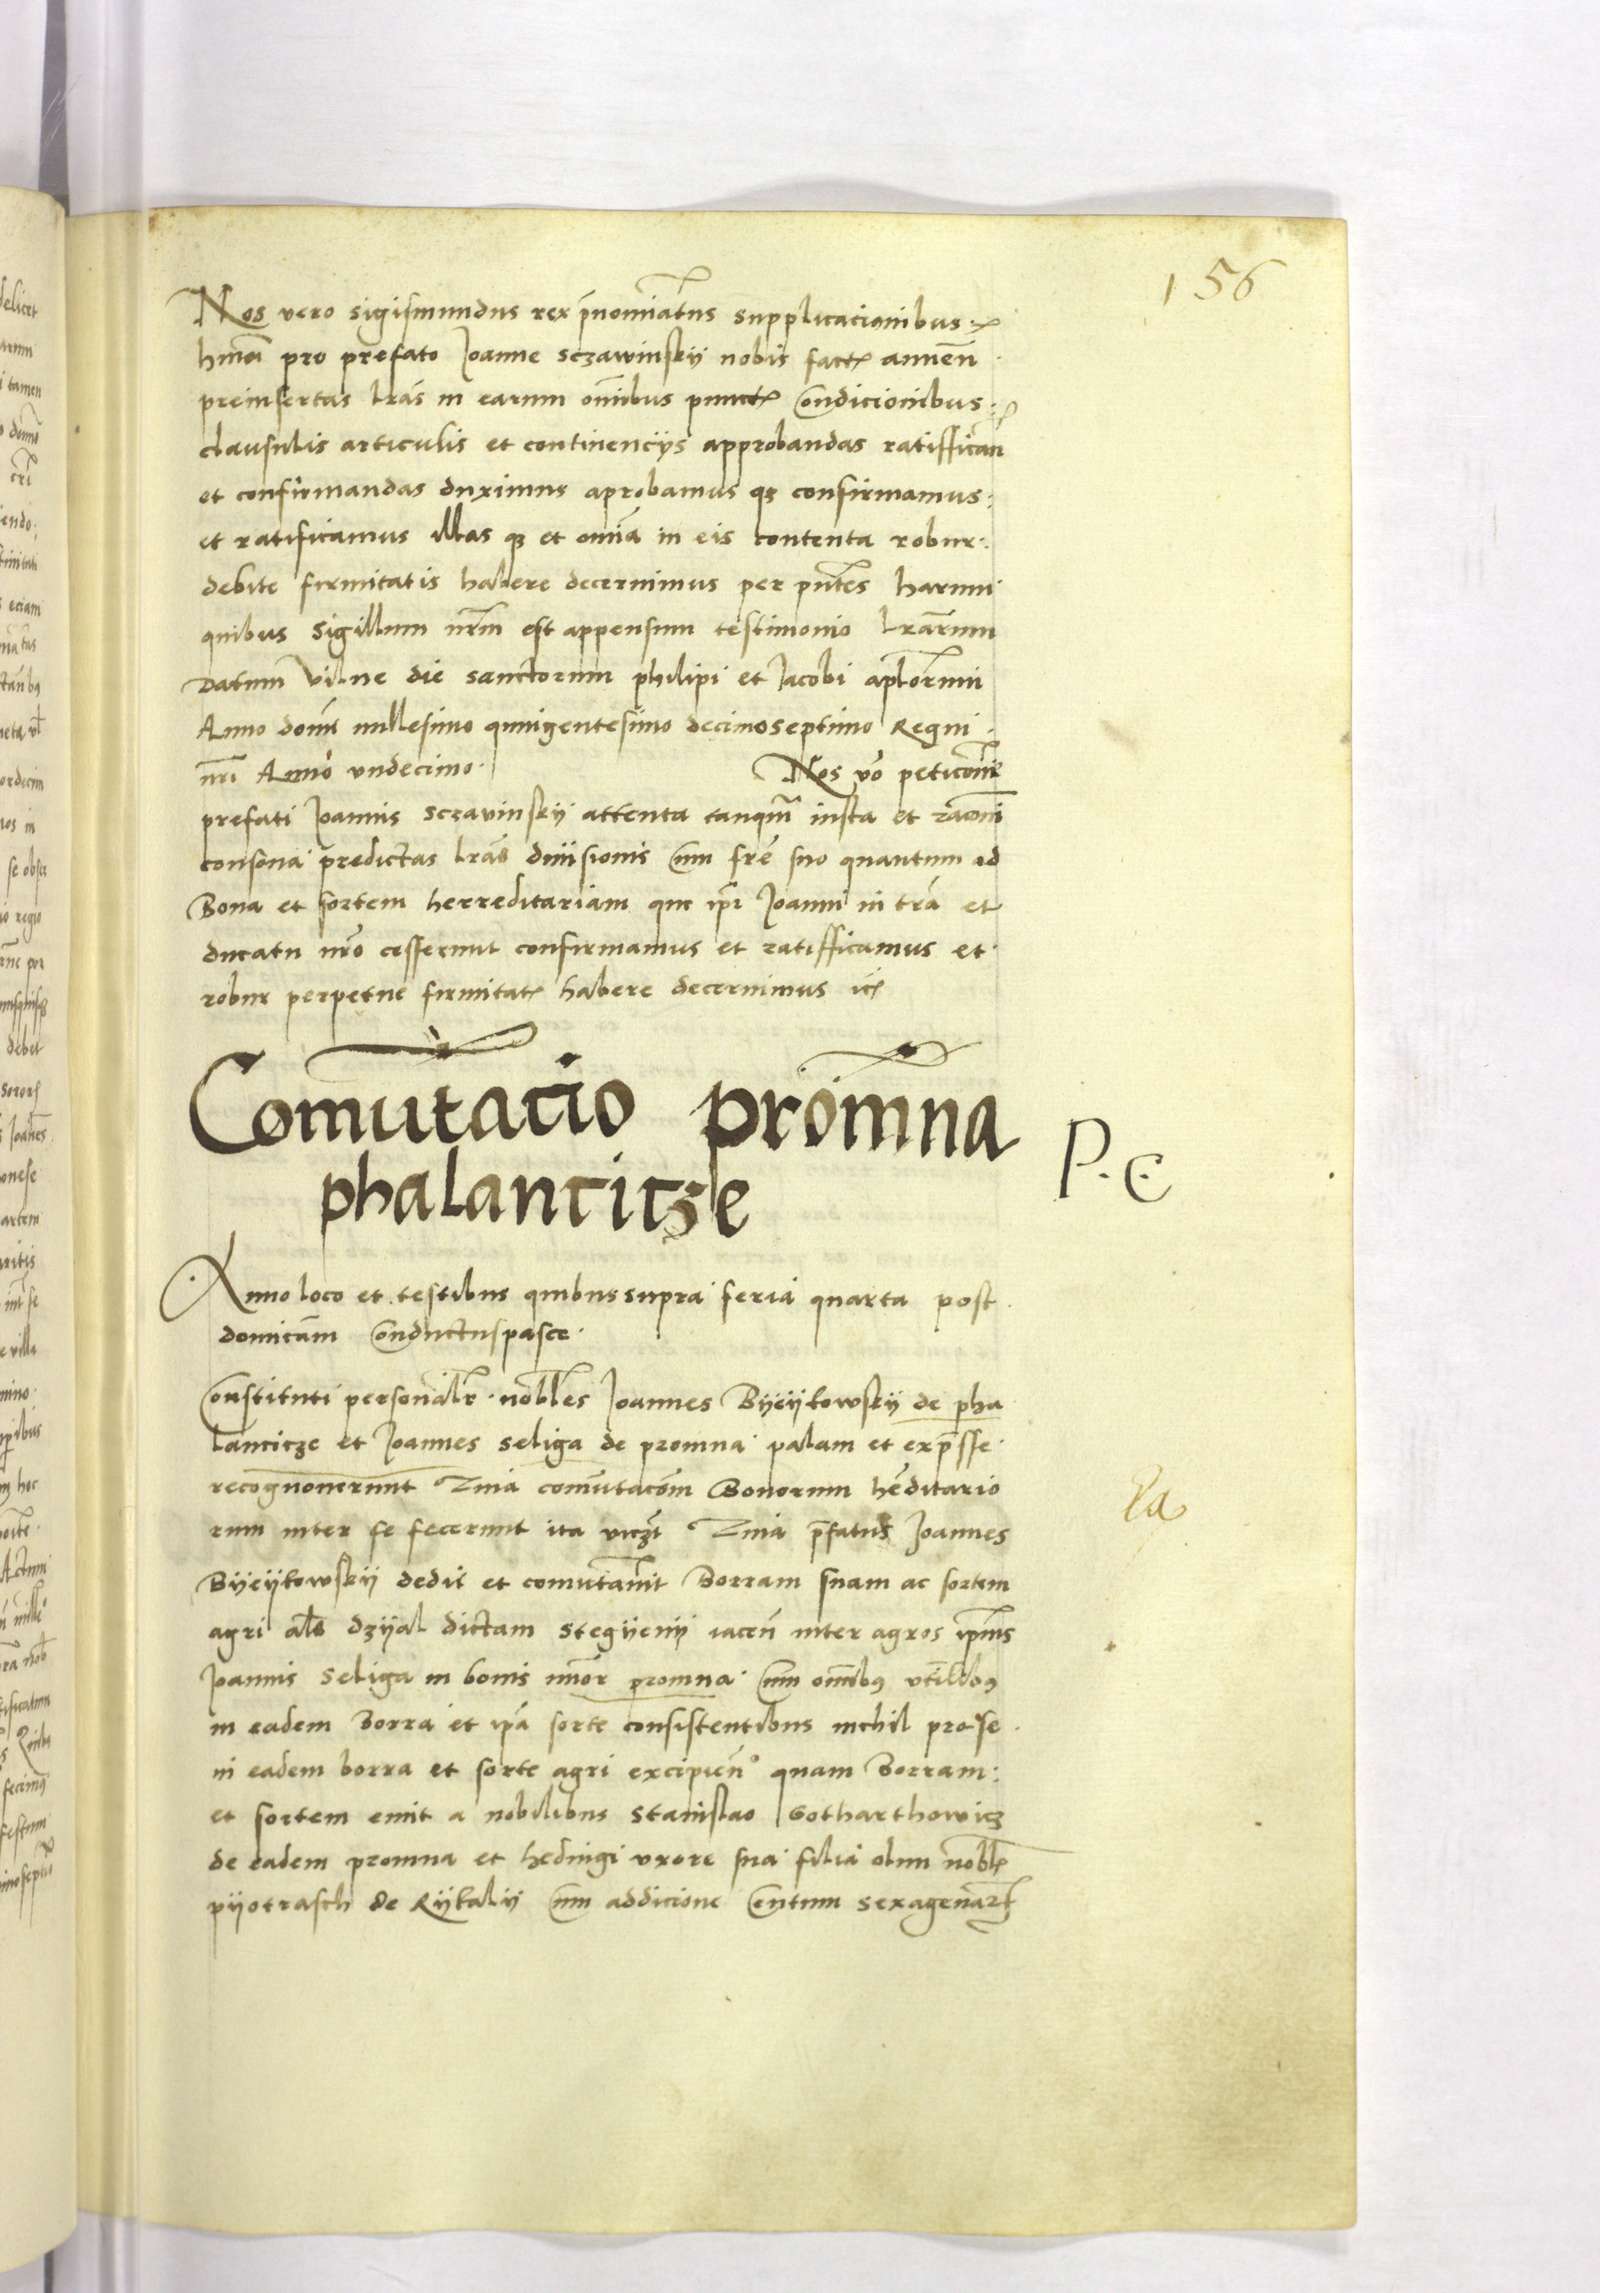 156
Nos vero sigismundus rex p̄nominatus supplicacionibus
hm̄oi pro prefato Joanne sczawinskij nobis fact annen̄
preinsertas lr̄as in earum om̄ibus punct condicionibus
clausulis articulis et continencijs approbandas ratiffican̄
et confirmandas duximus aprobamus qȝ confirmamus
et ratificamus illas qȝ et omīa in eis contenta robur
debite firmitatis habere decernimus per pn̄tes harum
quibus sigillum nr̄m est appensum testimonio lr̄arum
Datum vilne die sanctorum philipi et Jacobi apl̄orum
Anno domī millesimo quingentesimo decimoseptimo Regni
nr̄i Anno vndecimo. Nos vō peticōni
prefati Joannis sczavinskij attenta tanqm̄ iusta et raōni
consona predictas lr̄as diuisionis cum fr̄e suo quantum ad
Bona et sortem herreditariam que ip̄i Joanni in tr̄a et
ducatu nr̄o cesserunt confirmamus et ratifficamus et
robur perpetue firmitat habere decernimus
Com̄utacio promna
phalanticze
P. C
Anno loco et testibus quibus supra feria quarta post
domicam conductus pasce.
Constituti personalr̄ nobl̄es Joannes Bijeijkowskij de pha
lanticze et Joannes seliga de promna palam et exp̄sse
recognouerunt Quia com̄utacōm Bonorum her̄editario
rum inter se fecerunt ita vicȝt Quia p̄fatus Joannes
Bijeijkowskij dedit et comutauit Borram suam ac sortem
agri al̄s dzijal dictam stegijenij iacen̄ inter agros ipīus
Joannis seliga in bonis promna cum om̄ibȝ vtil̄ibȝ
in eadem Borra et ip̄a sorte consistentibus nichil pro se
in eadem borra et sorte agri excipien̄ quam Borram
et sortem emit a nobilibus stanislao Gotharthowicz
de eadem promna et heduigi vxore sua filia olim nobl
pijotrasch de Rijkalij cum addicione centum sexagenar